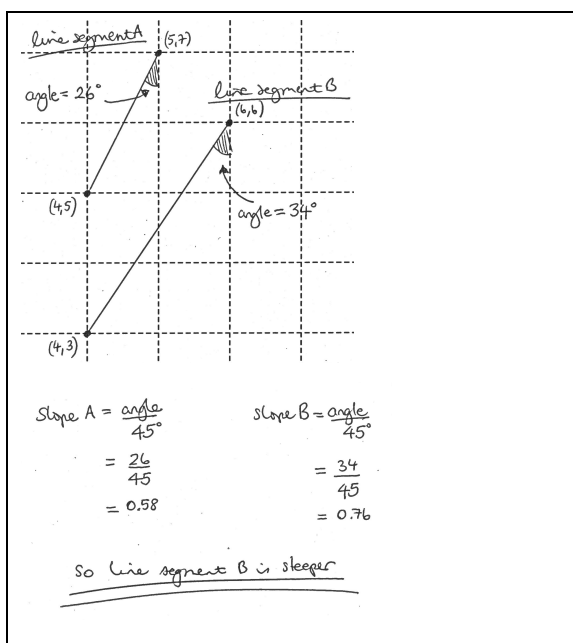 line segment A
(5,7)
angle = 26°
line segment B
(6,6)
(4,5)
angle = 34°
(4,3)
Slope A = angle/45°
= 26/45
= 0.58
slope B = angle/45°
= 34/45
= 0.76
So line segment B is steeper